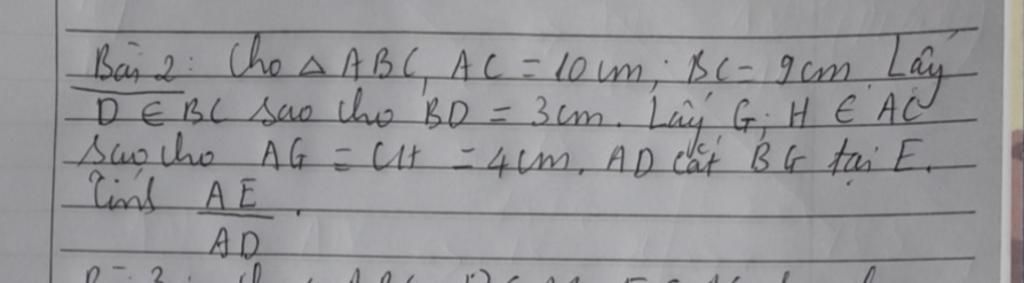 Bài 2: Cho △ ABC, AC = 10cm; BC = 9cm Lấy
D ∈ BC sao cho BD = 3cm. Lấy G; H ∈ AC
sao cho AG = CH = 4cm. AD cắt BG tại E.
Tính AE/AD.